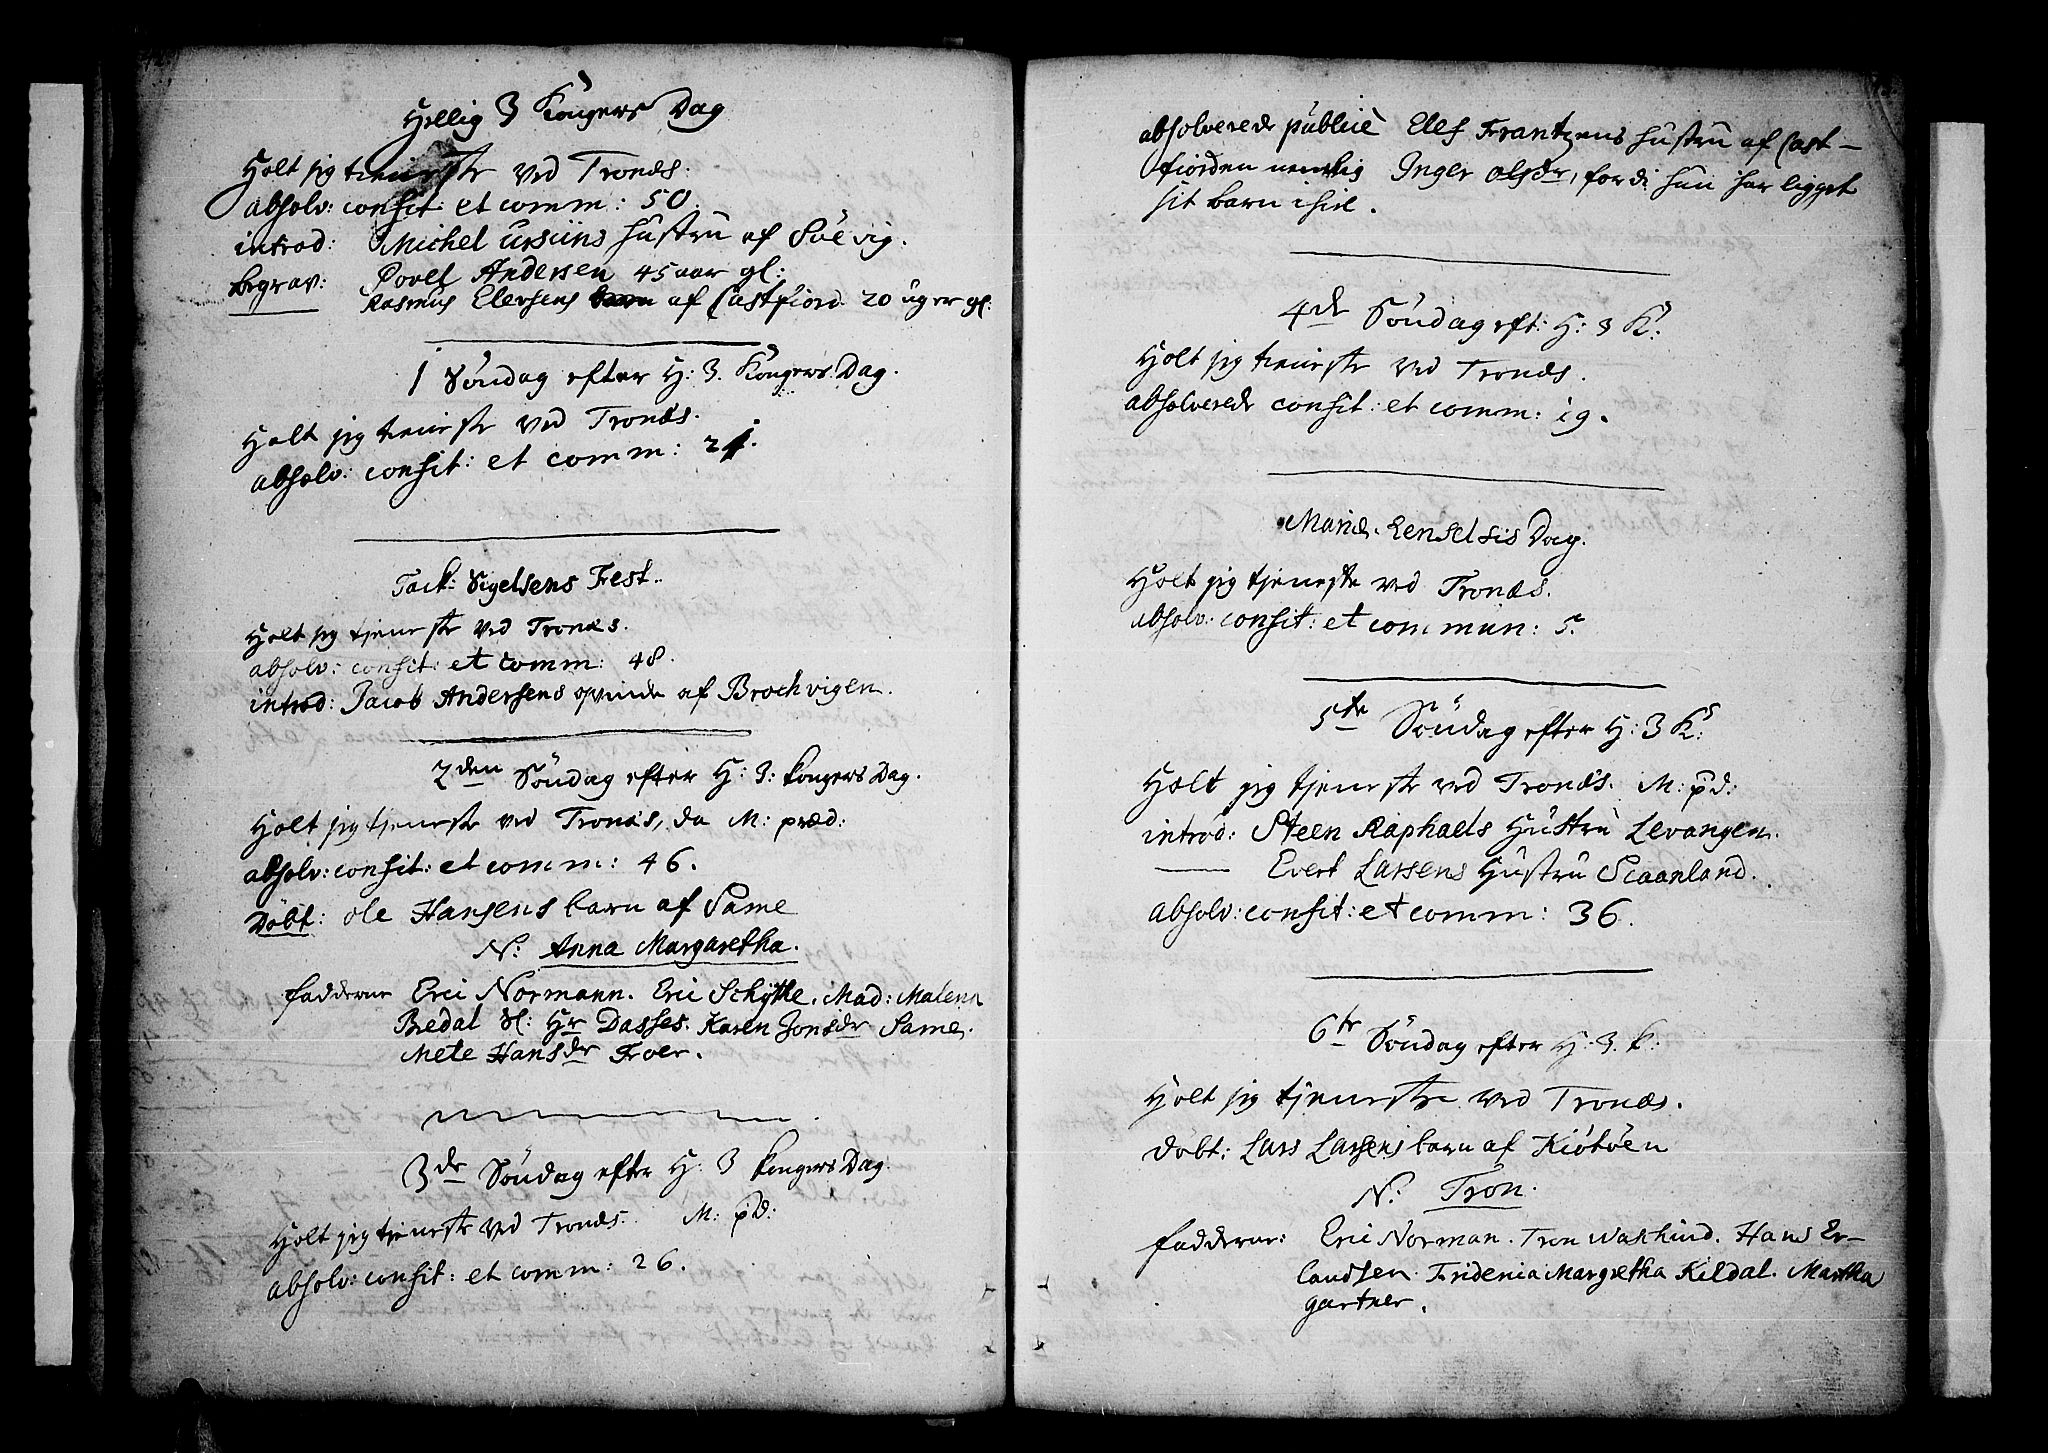 Hellig 3 Kongers Dag
Holt jeg tieneste ved Tronæs:
absolv: confit: et comm: 50.
introd: Michel Ursins hustru af Sølvig.
begrav: Povel Andersen 45 aar gl:
Rasmus Elersens barn af Castfiord 20 uger gl:
1 Søndag efter H: 3. Kongers Dag.
Holt jeg tieneste ved Tronæs.
absolv: confit: et comm: 21.
Tack: Sigelsens Fest.
Holt jeg tjeneste ved Tronæs.
absolv: confit: et comm: 48.
introd: Jacob Andersens qvinde af Brochvigen.
2den Søndag efter H: 3: kongers Dag.
Holt jeg tjeneste ved Tronæs, da M: præd:
absolv: confit: et comm: 46.
Døbt: ole Hansens barn af Same
N: Anna Margaretha.
fadderne Eric Normann. Eric Schytte. Mad: Malena
Bredal Sl: Hr Dasses. Karen Jonsdr Same.
Mete Hansdr Froer.
3de Søndag efter H: 3 kongers Dag.
Holt jeg tjeneste ved Tronæs. M: pd:
absolv: confit: et comm: 26.
absolverede publice Elef Frantzens hustru af Cast-
fiorden nemlig Inger olsdr, fordi hun har ligget
sit barn ihiel.
4de Søndag eft: H: 3 K:
Holt jeg tieneste ved Tronæs.
absolverede confit: et comm: 19.
Mariæ Renselsis Dag.
Holt jeg tjeneste ved Tronæs.
absolv: confit: et commun: 5.
5te Søndag efter H: 3 K:
Holt jeg tjeneste ved Tronæs. M: pd:
introd: Steen Raphaels Hustru Levangen.
— Evert Larsens Hustru Scaanland.
absolv: confit: et comm: 36.
6te Søndag efter H: 3. k:
Holt jeg tjeneste ved Tronæs.
døbt: Lars Larsens barn af Kiøtøen
N: Tron.
fadderne: Eric Norman. Tron Waskind. Hans Er-
landsen. Fridenia Margretha Kildal. Martha
gartner.